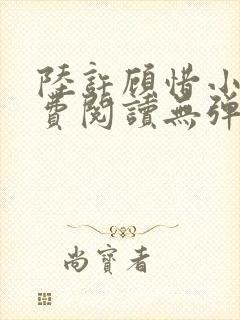 陸許顧惜小
費閱讀無彈
尚寶者